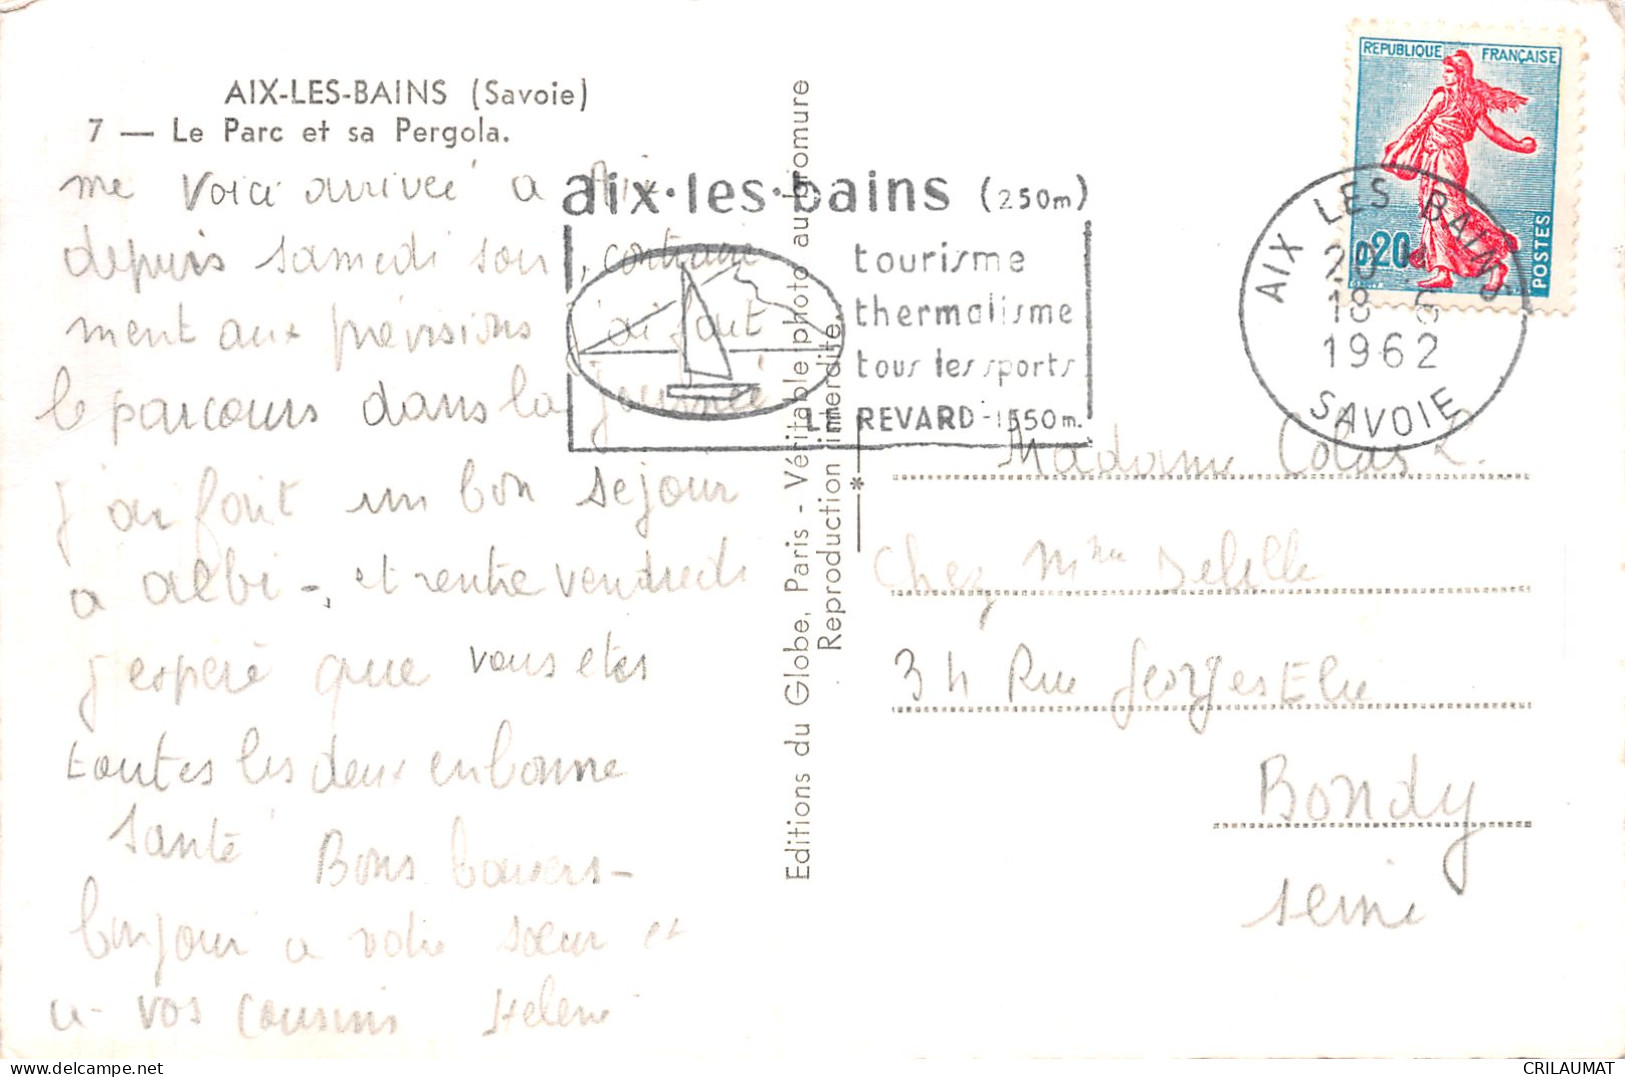 AIX-LES-BAINS (Savoie)
7 — Le Parc et sa Pergola.
me Voici arrivée a Aix
depuis samedi soir, contraire
ment aux prévisions j'ai fait
le parcours dans la journée
j'ai fait un bon sejour
a albi -, et rentre vendredi
j'espere que vous etes
toutes les deux en bonne
santé Bons baisers -
bonjour a votre soeur et
a vos cousins Helene
Editions du Globe, Paris - Véritable photo au bromure
Reproduction interdite.
aix·les·bains (250m)
tourisme
thermalisme
tous les sports
LE REVARD - 1550m.
REPUBLIQUE FRANÇAISE
0,20
POSTES
AIX LES BAINS
20 H
18 - 6
1962
SAVOIE
Madame Colas L.
Chez Mme Delille
34 Rue Georges Elie
Bondy
Seine
CRILAUMAT